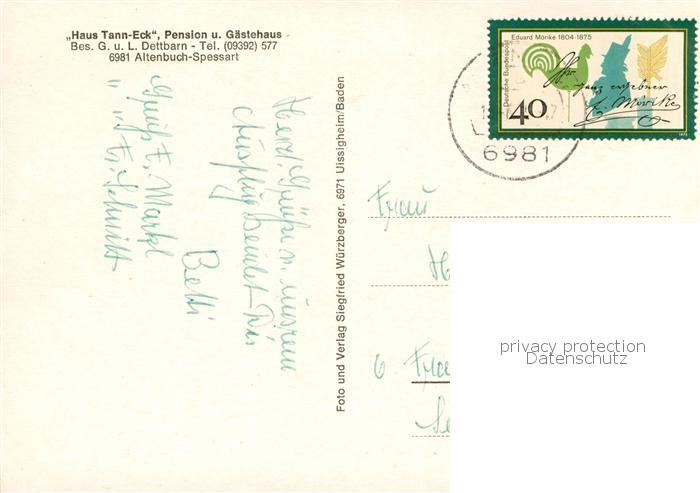 „Haus Tann-Eck", Pension u. Gästehaus
Bes. G. u. L. Dettbarn - Tel. (09392) 577
6981 Altenbuch-Spessart
Herzl. Grüße v. unserem
Ausflug sendet Dir
Betti
Gruß E. Markl
" E. Schmitt
Foto und Verlag Siegfried Würzberger, 6971 Uissigheim/Baden
Eduard Mörike 1804-1875
Deutsche Bundespost
40
Ihr
ganz ergebner
E. Mörike
1975
6981
Frau
6
privacy protection
Datenschutz